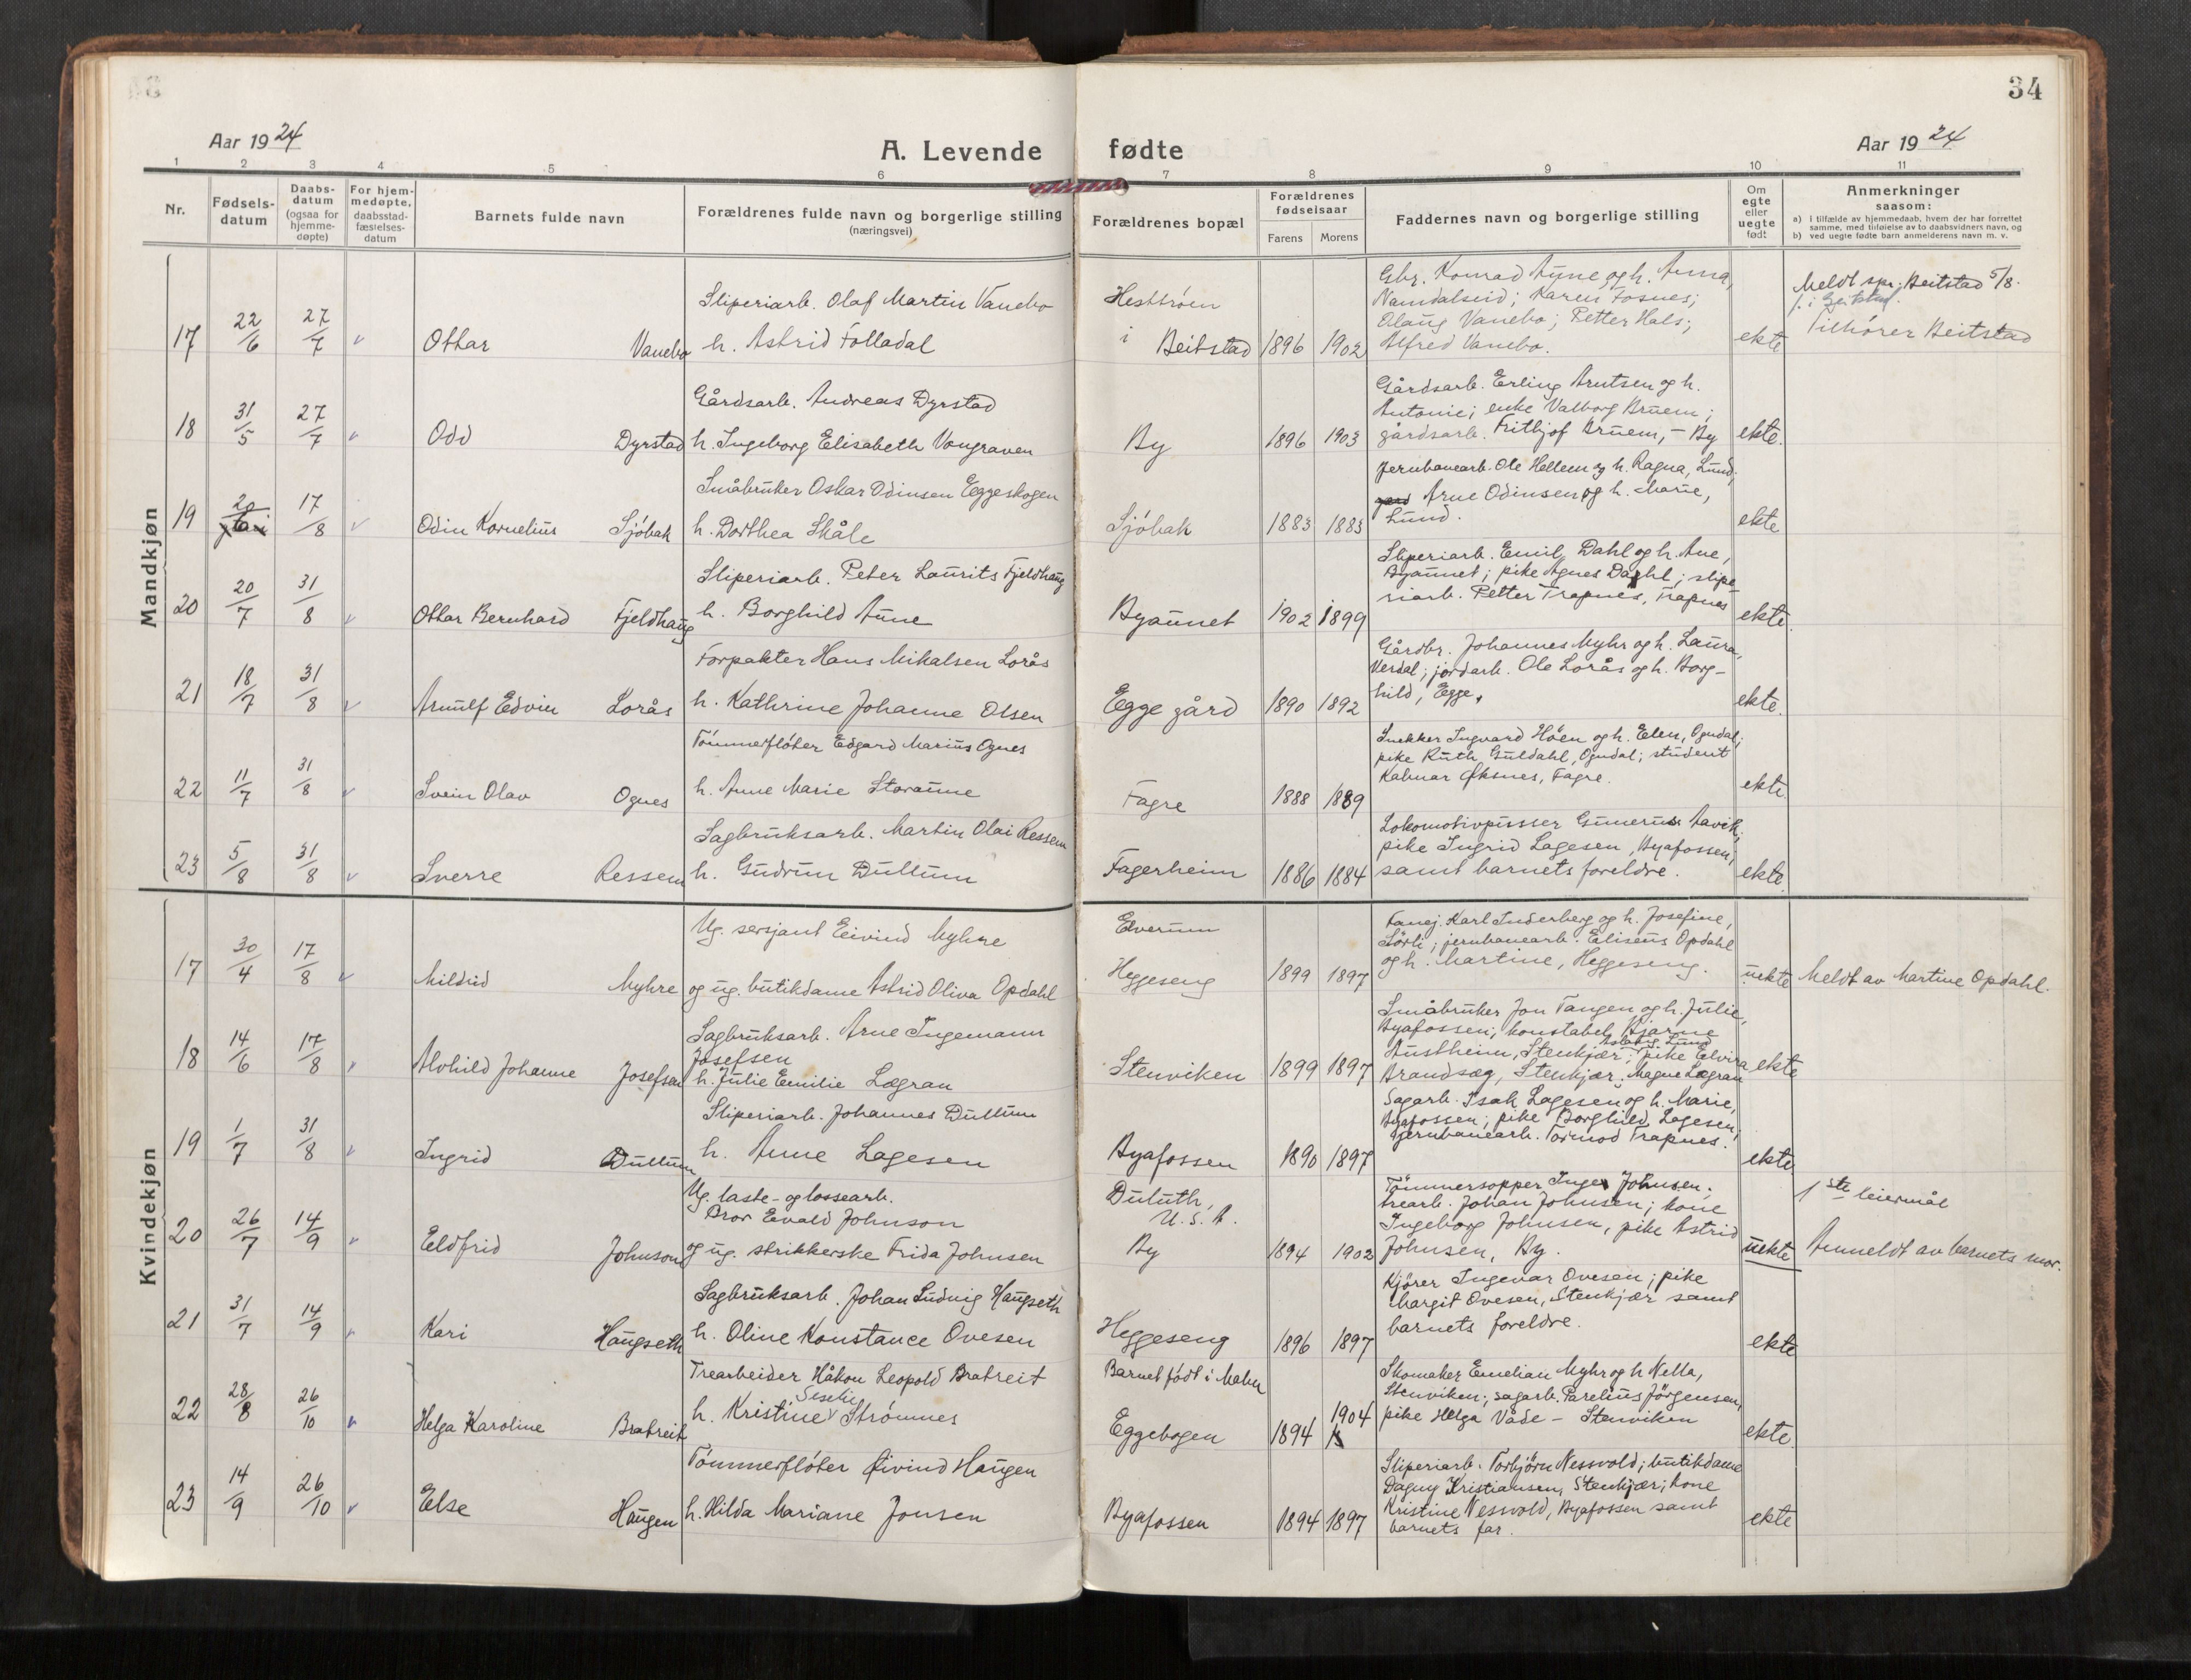 34
Aar 1924
A. Levende fødte
Aar 1924
1 2 3 4 5 6 7 8 9 10 11
Nr.
Fødsels-
datum
Daabs-
datum
(ogsaa for
hjemme-
døpte)
For hjem-
medøpte,
daabsstad-
fæstelses-
datum
Barnets fulde navn
Forældrenes fulde navn og borgerlige stilling
(næringsvei)
Forældrenes bopæl
Forældrenes
fødselsaar
Farens Morens
Faddernes navn og borgerlige stilling
Om
egte
eller
uegte
født
Anmerkninger
saasom:
a) i tilfælde av hjemmedaab, hvem der har forrettet
samme, med tilføielse av to daabsvidners navn, og
b) ved uegte fødte barn anmelderens navn m. v.
Mandkjøn
17 22/6 27/7 Ottar Vanebo
Sliperiarb. Olaf Martin Vanebo
h. Astrid Folladal
i Beitstad 1896 1902
Gbr. Konrad Aune og h. Anna,
Namdalseid; Karen Fosnes;
Olaug Vanebo; Petter Hals;
Alfred Vanebo.
ekte
Meldt spr. Beitstad 5/8.
f. i Beitstad.
Tilhører Beitstad
18 31/5 27/7 Odd Dyrstad
Gårdsarb. Andreas Dyrstad
h. Ingeborg Elisabeth Vongraven
By 1896 1903
Gårdsarb. Erling Arntsen og h.
Antonie; enke Valborg Bruem;
gårdsarb. Fritjof Bruem, - By
ekte.
19 20 17/8 Odin Kornelius Sjöbak
Småbruker Oskar Odinsen Eggeskogen
h. Dorthea Skåle
Sjöbak 1883 1883
Jernbanearb. Ole Hellem og h. Ragna, Lund;
Arne Odinsen og h. Marie,
Lund.
ekte
20 20/7 31/8 Ottar Bernhard Fjeldhaug
Sliperiarb. Peter Laurits Fjeldhaug
h. Borghild Aune
Byaunet 1902 1899
Sliperiarb. Emil Dahl og h. Ane,
Byaunet; pike Agnes Dahl; slipe-
riarb. Petter Trapnes, Trapnes
ekte.
21 18/7 31/8 Arnulf Edvin Lorås
Forpakter Hans Mikalsen Lorås
h. Kathrine Johanne Olsen
Egge gård 1890 1892
Gårdbr. Johannes Myhr og h. Laura,
Verdal; jordarb. Ole Lorås og h. Borg-
hild, Egge.
ekte.
22 11/7 31/8 Svein Olav Ognes
Tömmerflöter Edgard Marius Ognes
h. Anne Marie Storaune
Fagre 1888 1889
Snekker Ingvard Höen og h. Elen, Ogndal;
pike Ruth Guldahl, Ogndal; student
Kalmar Øksnes, Fagre.
ekte.
23 5/8 31/8 Sverre Ressem
Sagbruksarb. Martin Olai Ressem
h. Gudrun Dullum
Fagerheim 1886 1884
Lokomotivpusser Gunerius Aavik;
pike Ingrid Lagesen, Byafossen;
samt barnets foreldre.
ekte.
Kvindekjøn
17 30/4 17/8 Mildrid Myhre
Ug. sersjant Eivind Myhre
og ug. butikdame Astrid Oliva Opdahl
Elverum
Heggeseng 1899 1897
Fanej. Karl Inderberg og h. Josefine,
Lörli; jernbanearb. Eliseus Opdahl
og h. Martine, Heggeseng.
uekte Meldt av Martine Opdahl.
18 14/6 17/8 Alvhild Johanne Josefsen
Sagbruksarb. Arne Ingemann
Josefsen
h. Julie Emilie Lægran
Stenviken 1899 1897
Småbruker Jon Tangen og h. Julie,
Byafossen; konstabel Bjarne
Austheim, Stenkjær; pike Elvira
Brandsæg, Stenkjær; Magne Lægran
ekte
19 1/7 31/8 Ingrid Dullum
Sliperiarb. Johannes Dullum
h. Anne Lagesen
Byafossen 1890 1897
Sagarb. Isak Lagesen og h. Marie,
Byafossen; pike Borghild Lagesen;
jernbanearb. Tormod Trapnes.
ekte
20 26/7 14/9 Eldfrid Johnson
Ug. laste- og lossearb.
Bror Evald Johnson
og ug. strikkerske Frida Johnsen
Duluth,
U. S. A.
By 1894 1902
Tömmersopper Inge Johnsen;
trearb. Johan Johnsen; kone
Ingeborg Johnsen, pike Astrid
Johnsen, By.
uekte
1ste leiermål
Anmeldt av barnets mor.
21 31/7 14/9 Kari Haugseth
Sagbruksarb. Johan Ludvig Haugseth
h. Oline Konstance Ovesen
Heggeseng 1896 1897
Kjörer Ingevar Ovesen; pike
Margit Ovesen, Stenkjær samt
barnets foreldre.
ekte
22 28/8 26/10 Helga Karoline Bratreit
Trearbeider Håkon Leopold Bratreit
h. Kristine Strömnes
Barnet födt i Malm
Eggebogen 1894 1904
Skomaker Emelian Myhr og h Nella,
Stenviken; sagarb. Parelius Jörgensen,
pike Helga Våde - Stenviken
ekte.
23 14/9 26/10 Else Haugen
Tömmerflöter Øivind Haugen
h. Hilda Mariane Jonsen
Byafossen 1894 1897
Sliperiarb. Torbjörn Nessvold; butikdame
Dagny Kristiansen, Stenkjær; kone
Kristine Nessvold, Byafossen samt
barnets far.
ekte